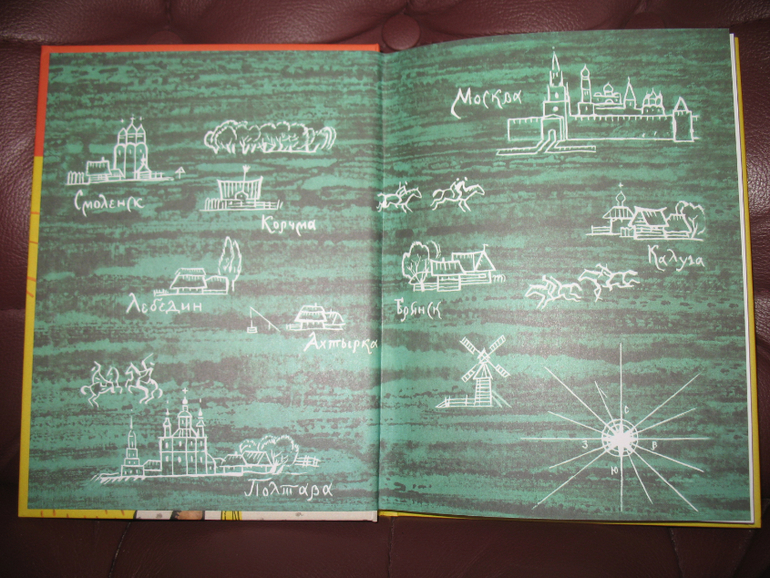 Смоленск
Корчма
Лебедин
Ахтырка
Полтава
Москва
Калуга
Брянск
С
З
В
Ю